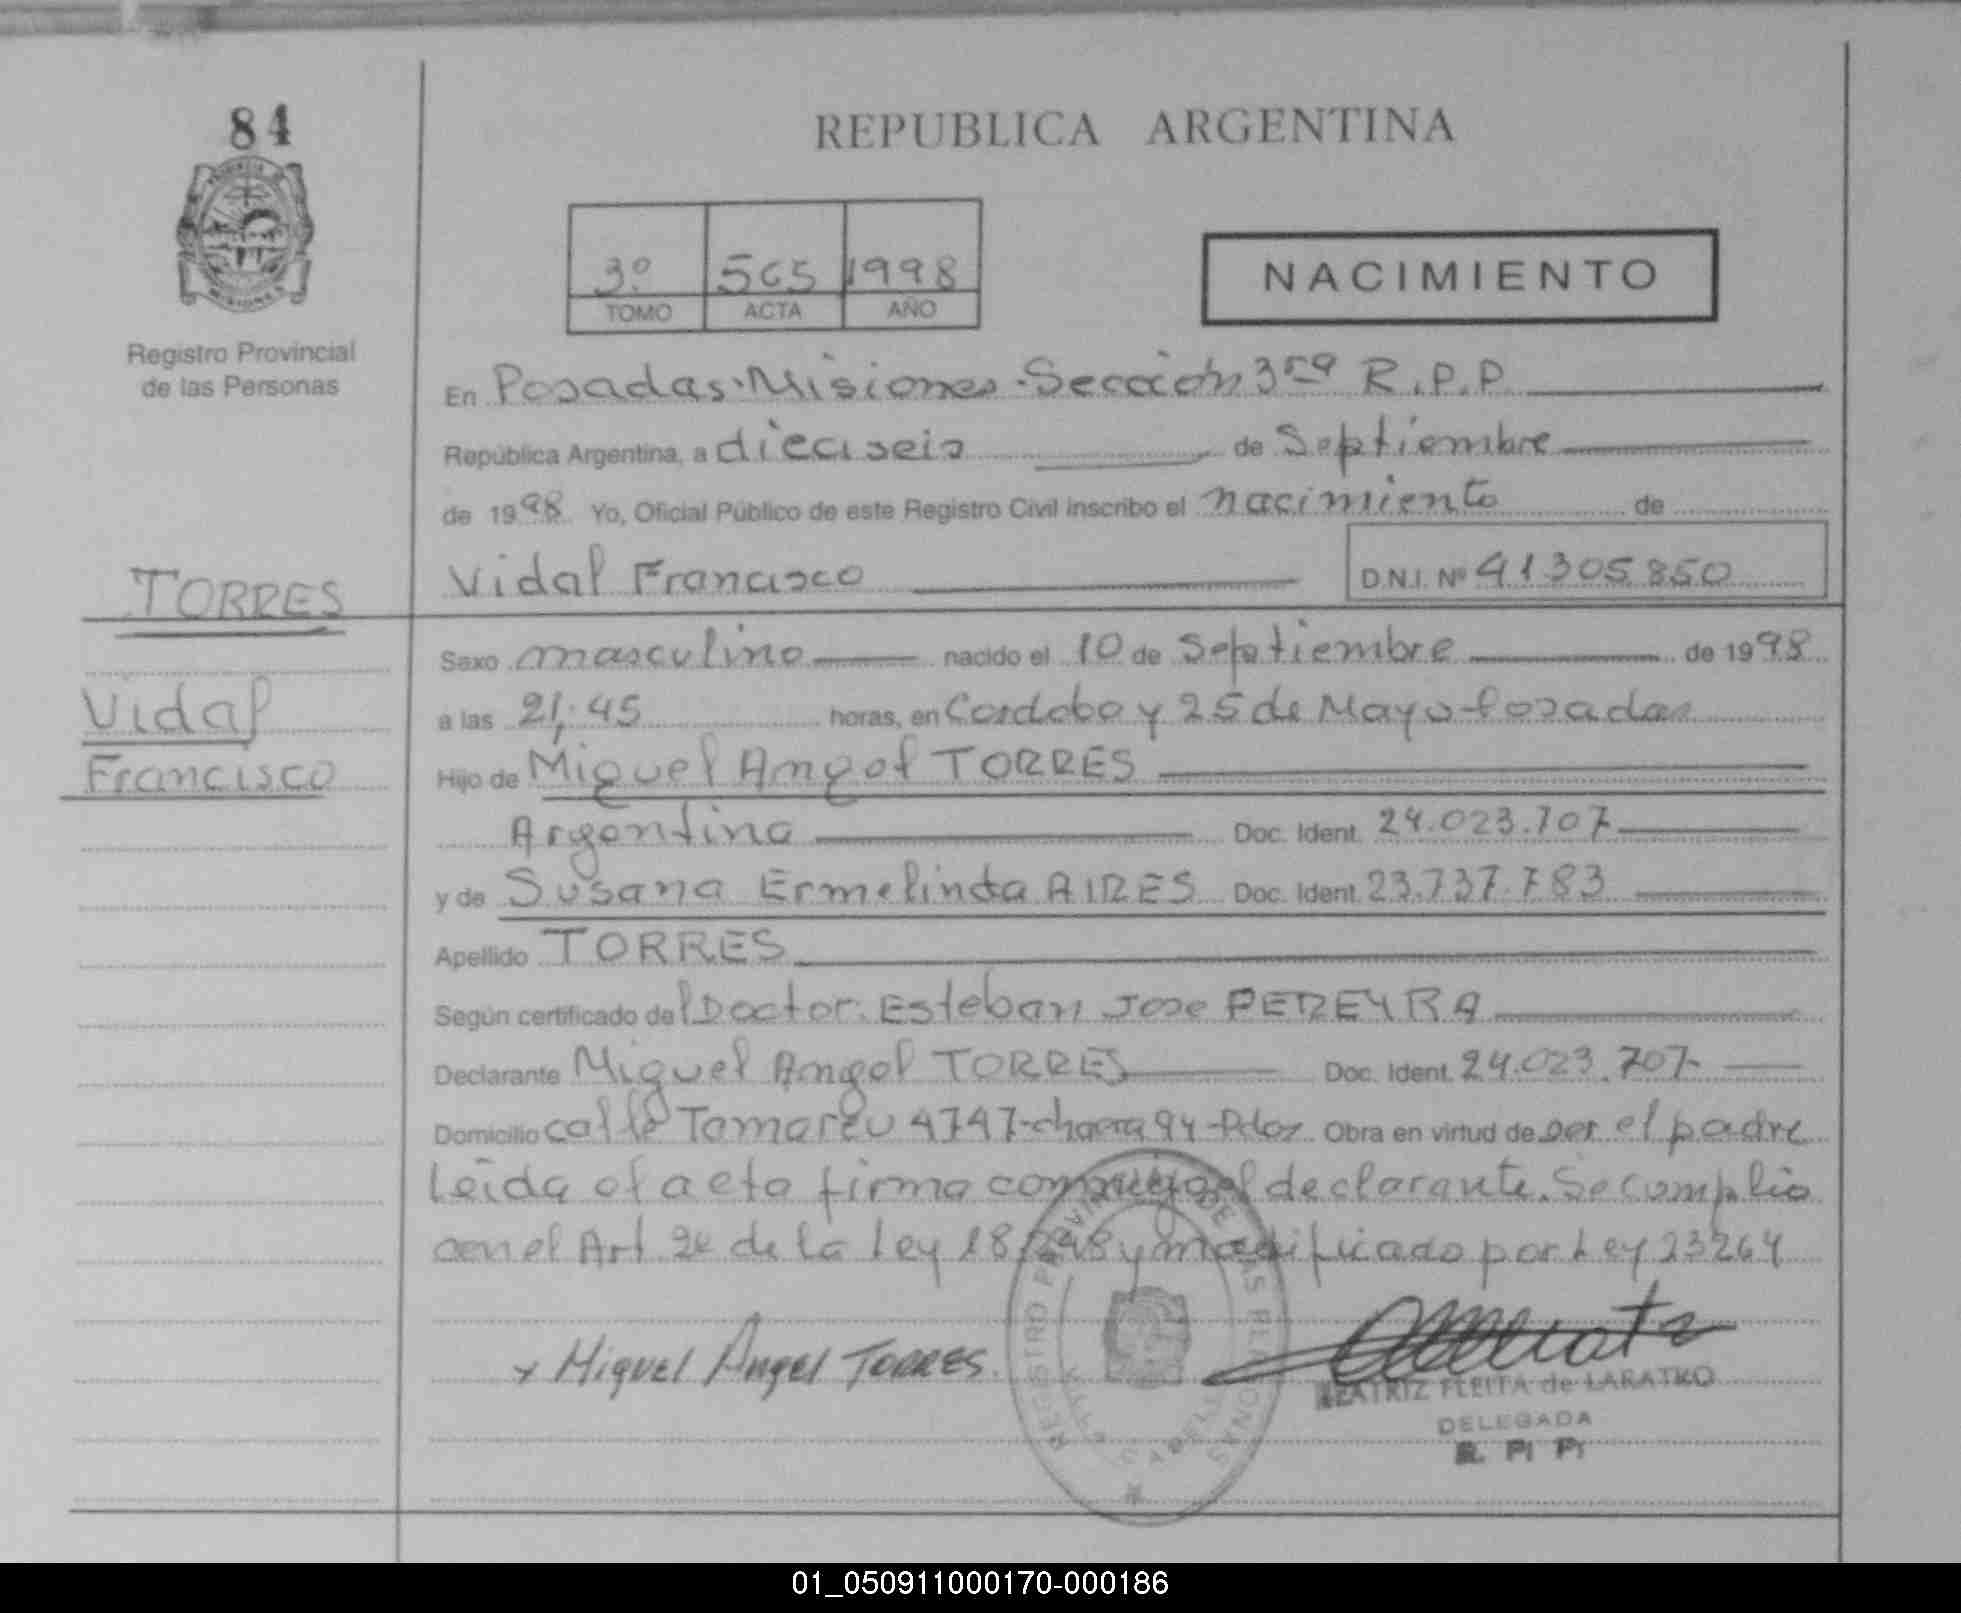 84
REPUBLICA ARGENTINA
3º 565 1998
TOMO ACTA AÑO
NACIMIENTO
Registro Provincial
de las Personas
En Posadas-Misiones-Sección 3ra R.P.P
República Argentina, a dieciseis de Septiembre
de 1998 Yo, Oficial Público de este Registro Civil inscribo el nacimiento de
Vidal Francisco D.N.I. Nº 41305850
TORRES
Vidal
Francisco
Sexo masculino nacido el 10 de Septiembre de 1998
a las 21,45 horas, en Cordoba y 25 de Mayo-Posadas
Hijo de Miguel Angel TORRES
Argentina Doc. Ident. 24.023.707
y de Susana Ermelinda AIRES Doc. Ident. 23.737.783
Apellido TORRES
Según certificado del Doctor: Esteban Jose PEREYRA
Declarante Miguel Angel TORRES Doc. Ident. 24.023.707
Domicilio calle Tomareu 4747-chacra 94-Pdas Obra en virtud de ser el padre
Leida el acta firma conmigo el declarante. Se complio
con el Art. 2º de la Ley 18.248 y modificado por Ley 23264
x Miguel Angel TORRES.
REGISTRO PROVINCIAL DE LAS PERSONAS
BEATRIZ FLEITA de LARATKO
DELEGADA
R. P. P.
01_050911000170-000186